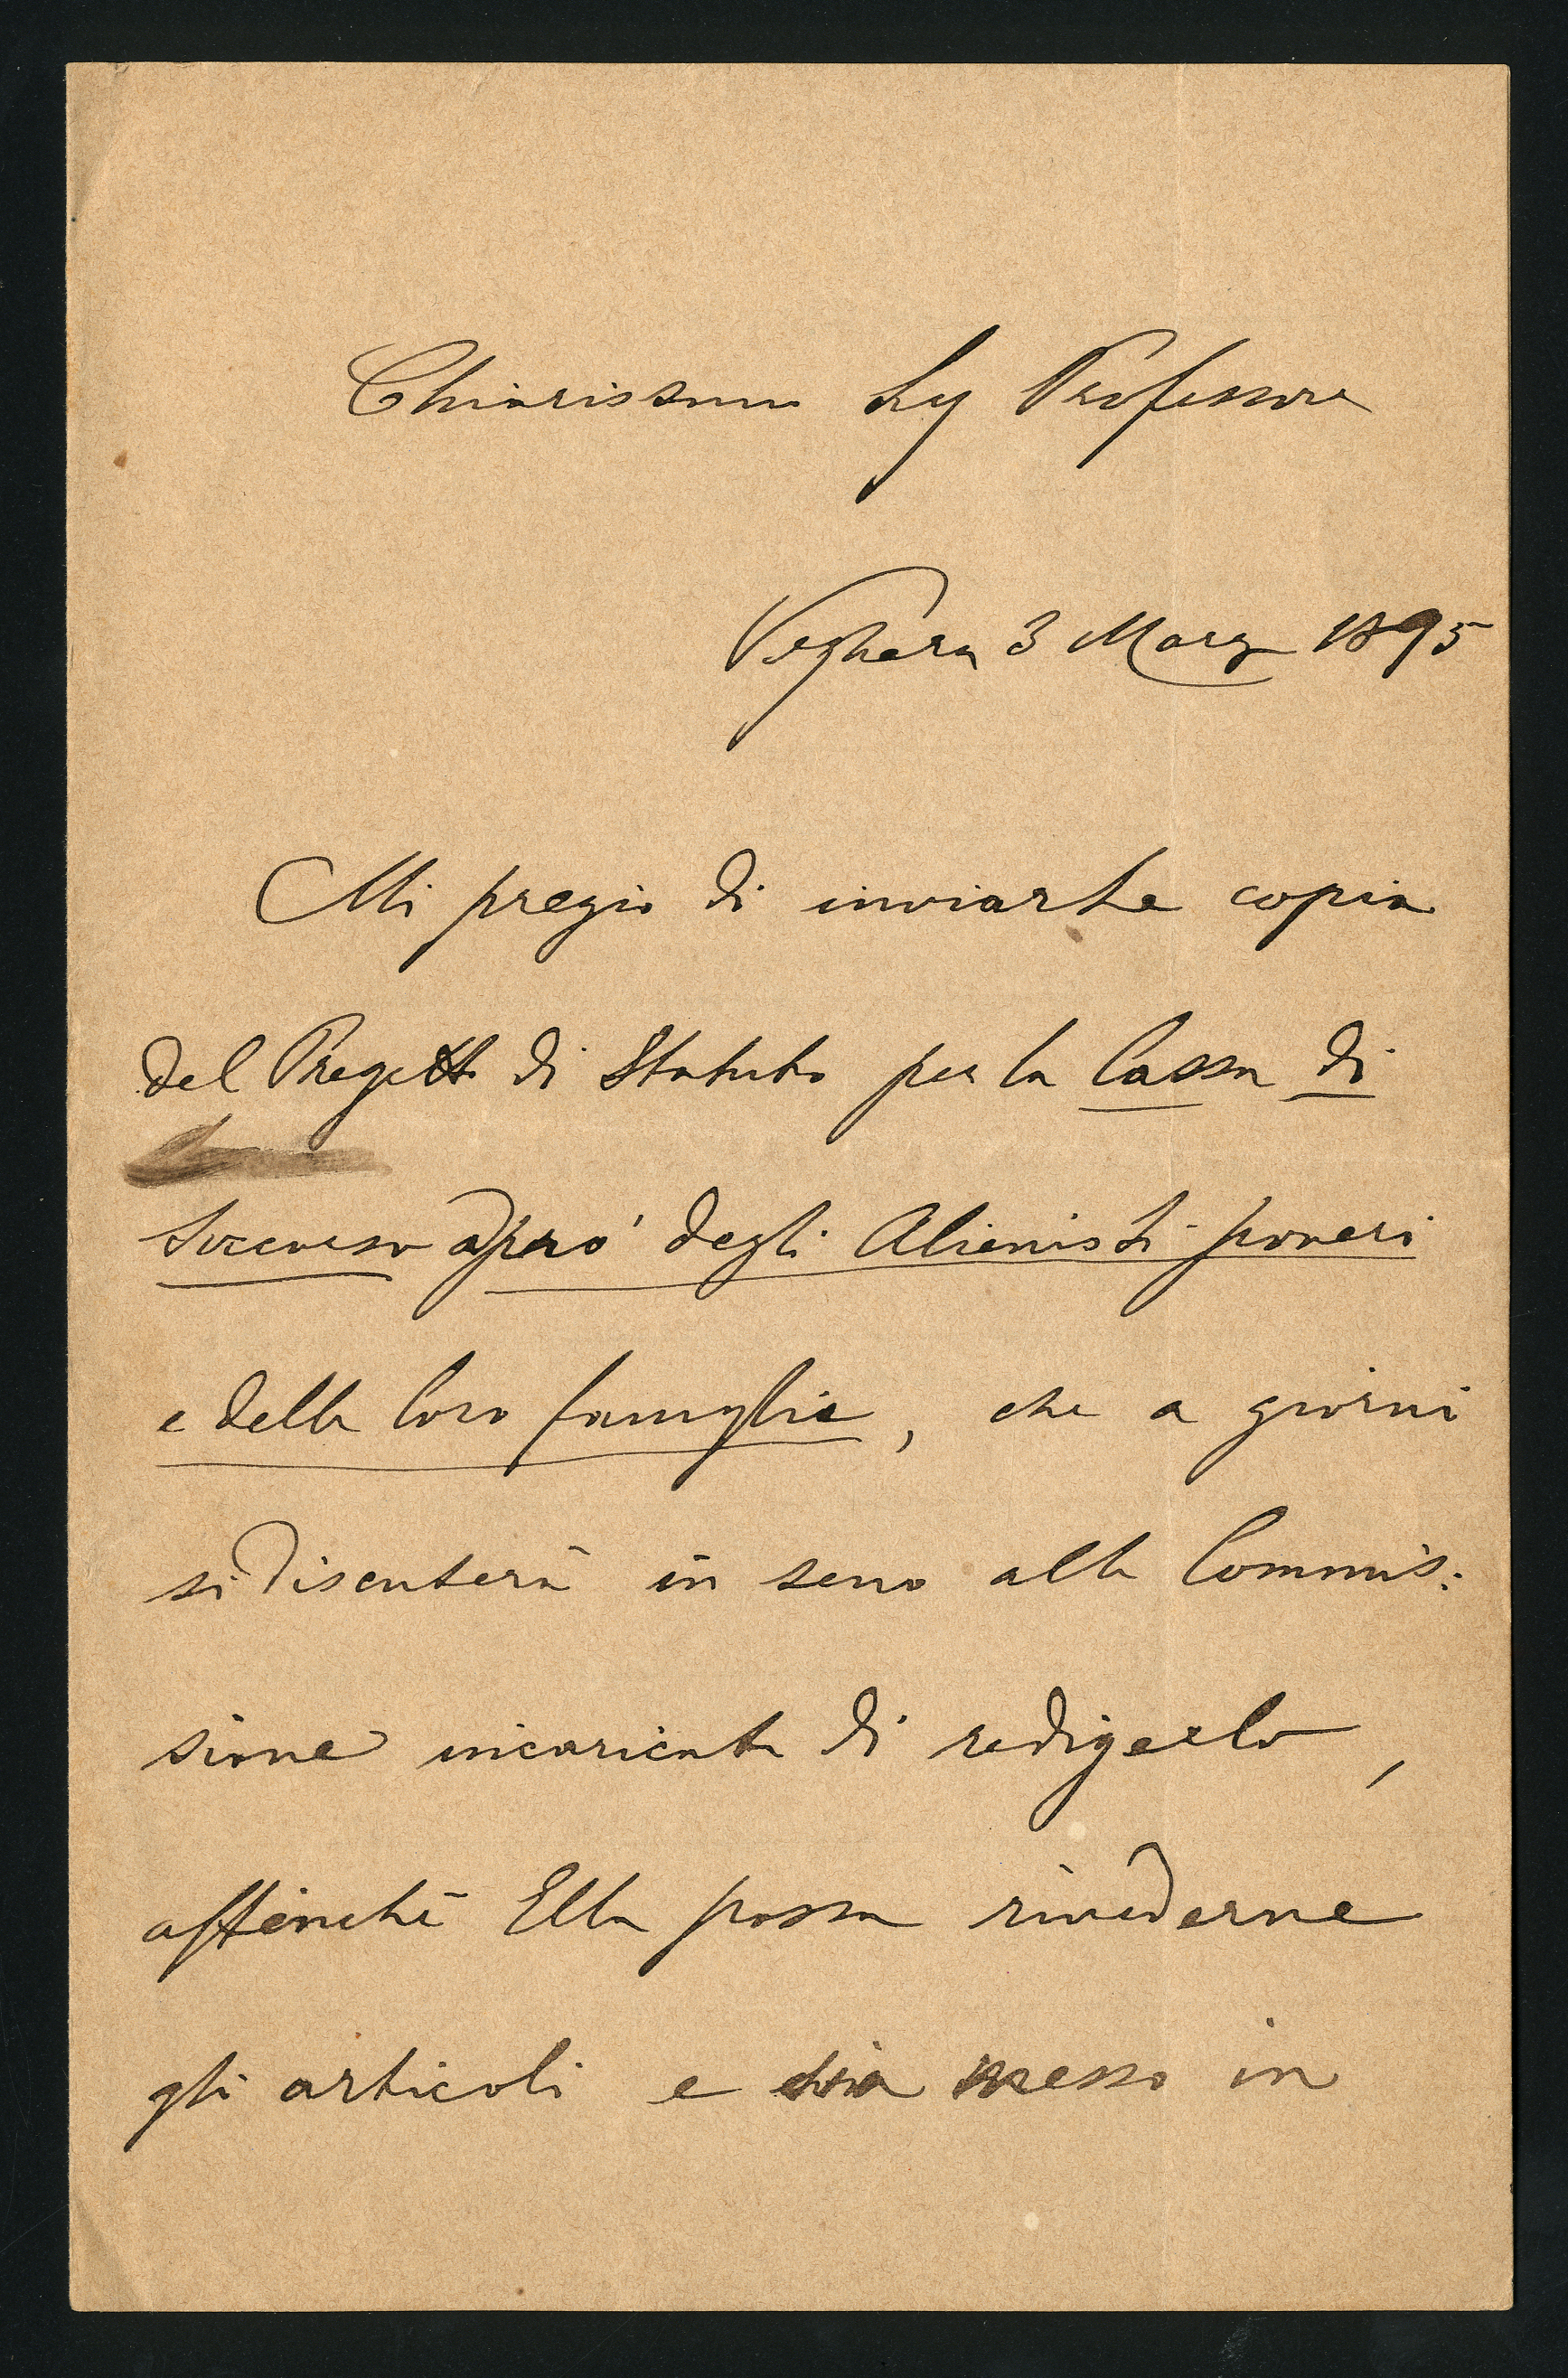 Chiarissimo Sig Professore
Voghera 3 Marzo 1895
Mi pregio di inviarLe copia
del Progetto di Statuto per la Cassa di
Soccorso a pro' degli Alienisti poveri
e delle loro famiglie, che a giorni
si discuterà in seno alla Commis:
sione incaricata di redigerlo,
affinchè Ella possa rivederne
gli articoli e sia messo in